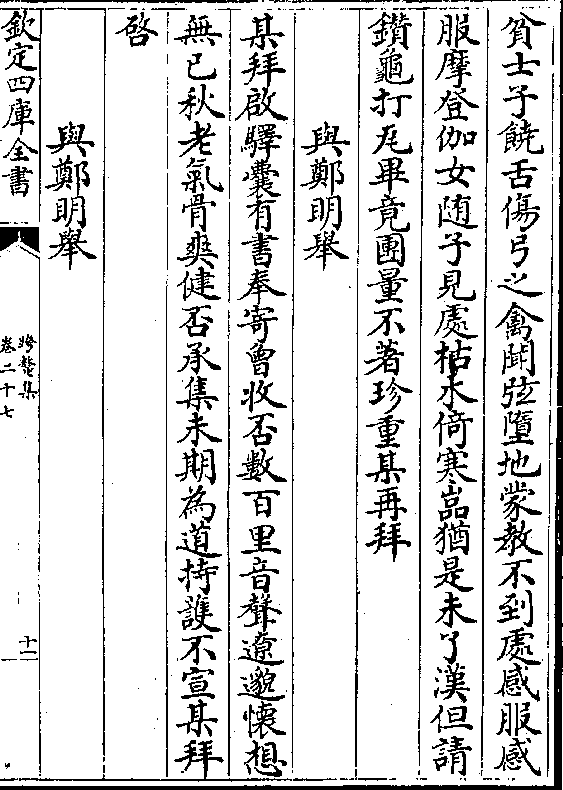 貧士子饒舌傷弓之禽聞弦墮地蒙教不到處感服感
服摩登伽女随子見處枯水倚寒嵓猶是未了漢但請
鑚龜打瓦畢竟圑量不著珍重某再拜
與鄭明舉
某拜啟驛囊有書奉寄曾收否數百里音聲遼邈懐想
無已秋老氣骨爽健否承集未期為道持護不宣某拜
啓
與鄭明舉
欽定四庫全書
跨鼇集
卷二十七
十二